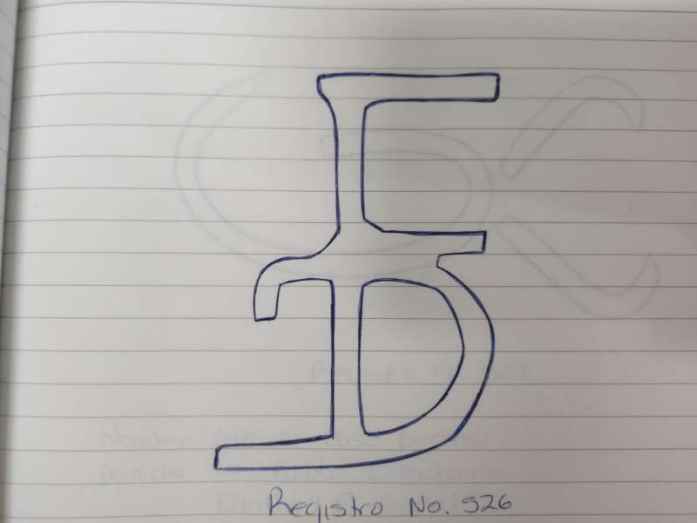 Registro No. 526